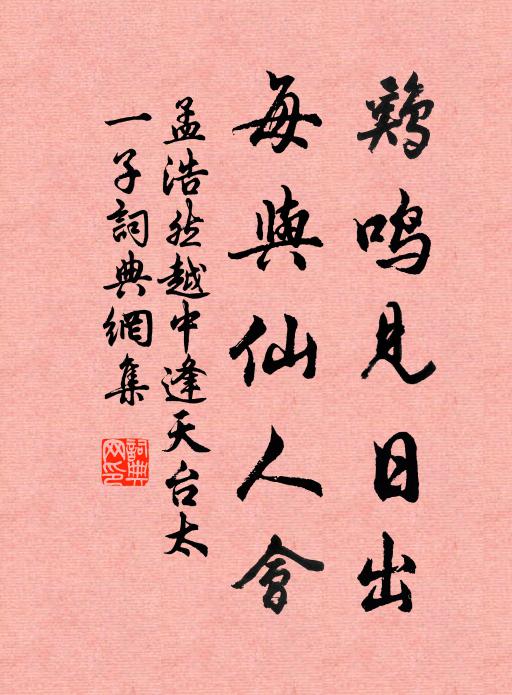 鷄鳴見日出
每與仙人會
孟浩然越中逢天台太
一子詞典網集
詞典
网印